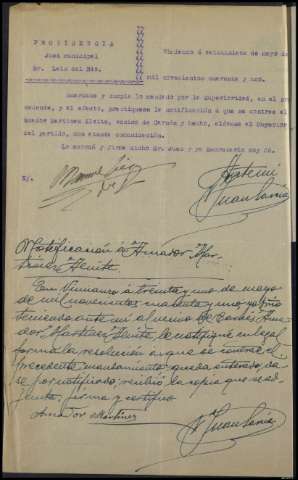 PROVIDENCIA
Juez municipal
Sr. Luis del Río.
Vimianzo á veintisiete de mayo de
mil novecientos cuarenta y uno.
Guardese y cumpla lo mandado por la Superioridad, en el pre
cedente, y al efecto, practiquese la notificación á que se contrae el
Amador Martinez Aleite, vecino de Carnés y hecho, elévese al Superior
del partido, con atenta comunicación.
Lo acordó y firma dicho Sr. Juez y yo Secretario doy fé.
Manuel
Ante mí
Juan
Notificación á Amador Mar-
tinez
En Vimianzo á treinta y uno de mayo
de mil novecientos cuarenta y uno, yo
teniendo ante mí al vecino de Carnés Ama-
dor Martinez le notifiqué en legal
forma la resolución a que se contrae el
precedente mandamiento, queda enterado, da
se por notificado, recibió la copia que se ad-
junta, firma y certifico
Amador Martinez
Juan